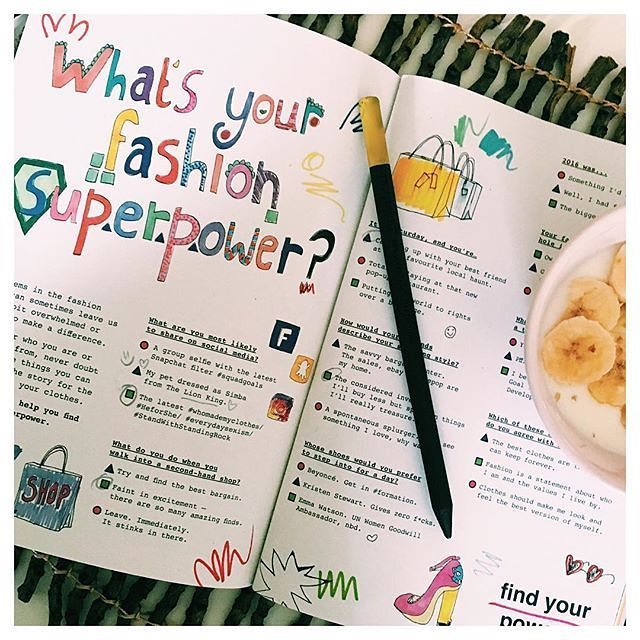 What's your
fashion
superpower?
ems in the fashion
an sometimes leave us
bit overwhelmed or
o make a difference.
who you are or
from, never doubt
things you can
the story for the
your clothes.
help you find
erpower.
SHOP
What are you most likely
to share on social media?
A group selfie with the latest
Snapchat filter #squadgoals
My pet dressed as Simba
from The Lion King.
The latest #whomademyclothes/
#HeForShe/ #everydaysexism/
#StandWithStandingRock
What do you do when you
walk into a second-hand shop?
Try and find the best bargain.
Faint in excitement –
there are so many amazing finds.
Leave. Immediately.
It stinks in there.
F
It's Saturday, and you're.
up with your best friend
favourite local haunt.
at that new
pop-up restaurant.
Putting world to rights
over a
How would your friends
describe your style?
The savvy bargain hunter.
The sales, ebay pop are
my home.
The considered
I'll buy less but things
I'll really treasure.
A spontaneous splurger. see
something I love, why
Whose shoes would you prefer
to step into for a day?
Beyoncé. Get in #formation.
Kristen Stewart. Gives zero f*cks.
Emma Watson. UN Women Goodwill
Ambassador, nbd.
2016 was...
Something I'd
Well, I had
The bigge
Your f
hole
I be
Goal
Develop
Which of these
do you agree with
The best clothes are t
can keep forever.
Fashion is a statement about who
I am and the values I live by.
Clothes should make me look and
feel the best version of myself.
find your